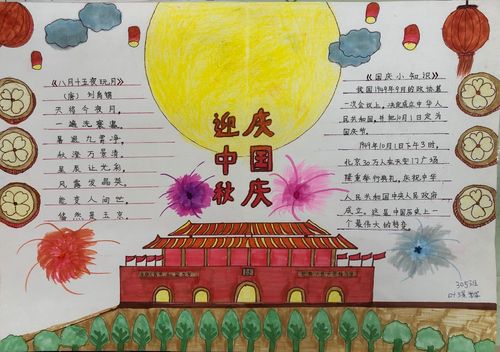 《八月十五夜玩月》
(唐) 刘禹锡
天将今夜月，
一遍洗寰瀛。
暑退九霄净，
秋澄万景清。
星辰让光彩，
风露发晶英。
能变人间世，
翛然是玉京。
迎中秋
庆国庆
《国庆小知识》
我国1949年9月的政协第
一次会议上，决定成立中华人
民共和国，并把10月1日定为
国庆节。
1949年10月1日下午3时，
北京30万人在天安门广场
隆重举行典礼，庆祝中华
人民共和国中央人民政府
成立，这是中国历史上一
个最伟大的转变。
305班